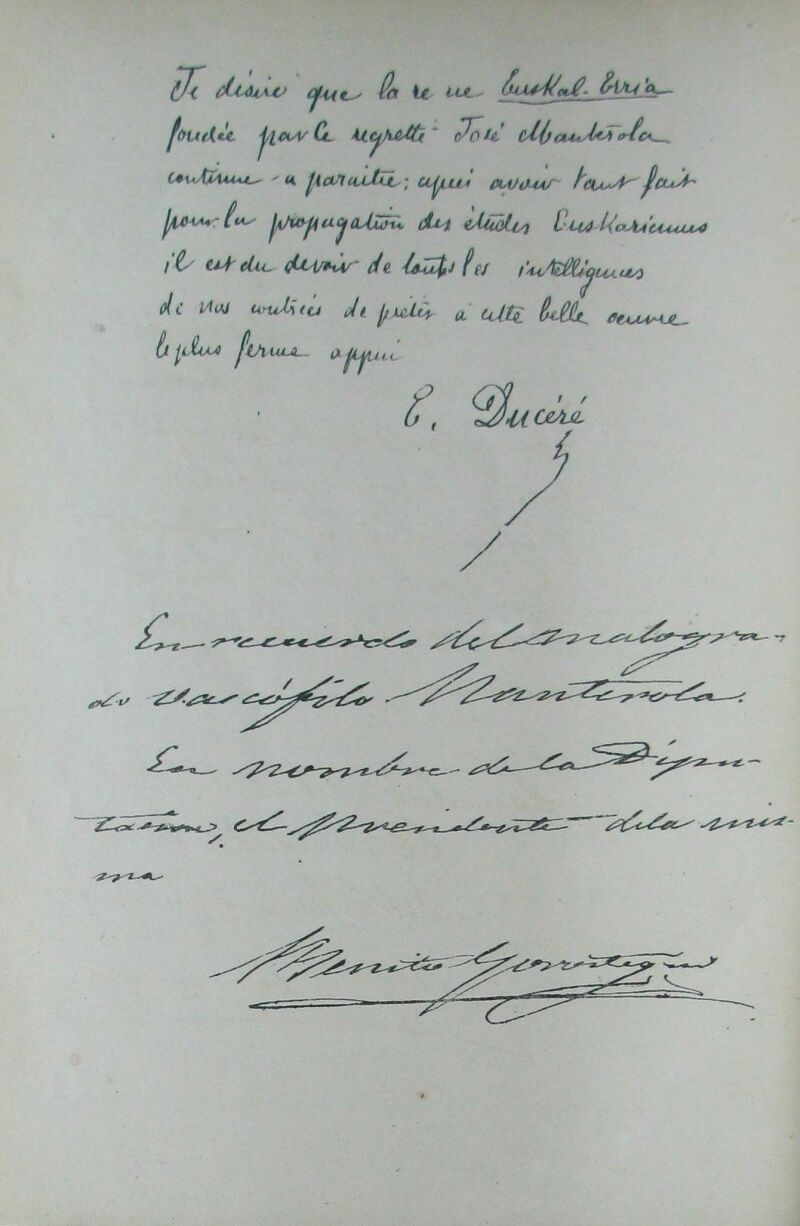 Je désire que la revue Euskal-Erria
fondée par le regretté José Manterola
continue a paraitre; après avoir tant fait
pour la propagation des études Euskariennes
il est du devoir de toutes les intelligences
de nos contrées de prêter à cette belle oeuvre
le plus ferme appui
E. Ducéré
En recuerdo del malogra-
do vascófilo Manterola.
En nombre de la Dipu-
tacion, el presidente de la mis-
ma
Benito Gorostegui